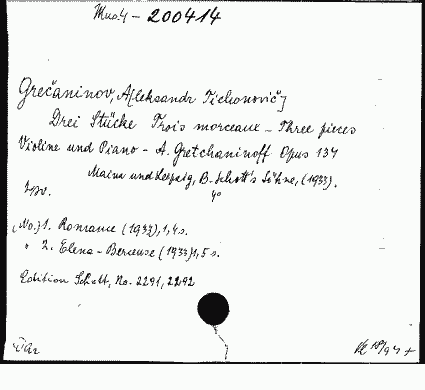 Mus. 4 - 200414
Grečaninov, A[leksandr Tichonovič]
Drei Stücke Trois morceaux - Three pieces
Violine und Piano - A. Gretchaninoff Opus 134
Mainz und Leipzig, B. Schott's Söhne, (1933).
4°
(No.) 1. Romance (1933), 1, 4 s.
" 2. Elena - Berceuse (1933) 1, 5 s.
Edition Schott, No. 2291, 2292